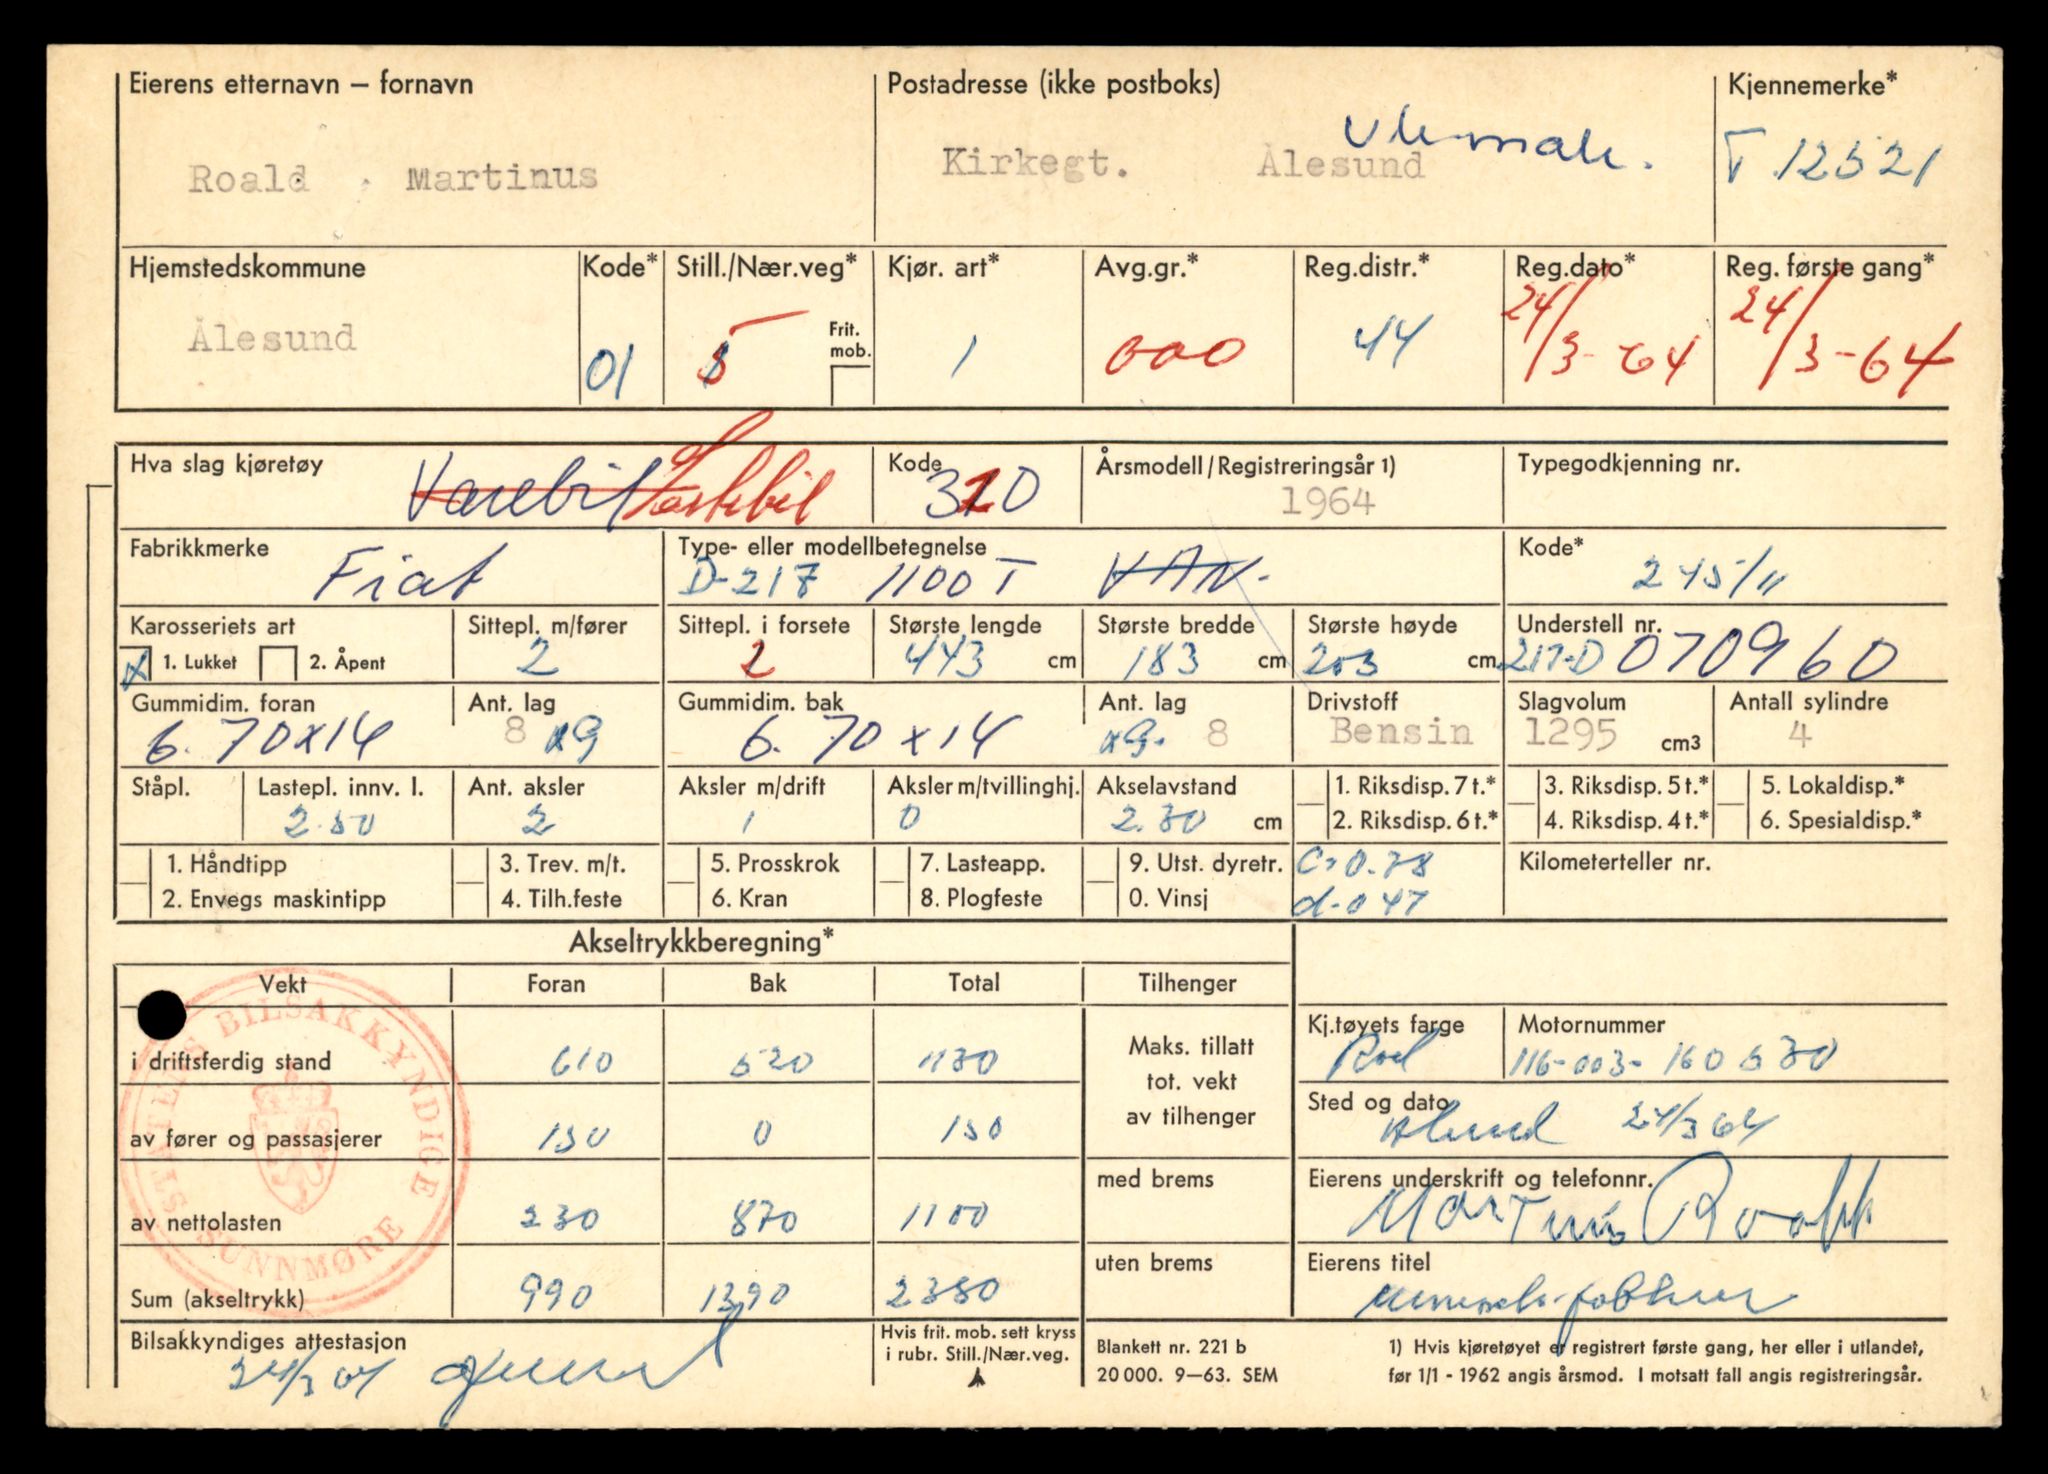 Eierens etternavn – fornavn
Roald Martinus
Postadresse (ikke postboks)
Kirkegt. Ålesund
Kjennemerke*
T 12521
Hjemstedskommune
Ålesund
Kode*
01
Still./Nær.veg*
5
Frit. mob.
Kjør. art*
1
Avg.gr.*
000
Reg.distr.*
44
Reg.dato*
24/3-64
Reg. første gang*
24/3-64
Hva slag kjøretøy
Varebil Lastebil
Kode
310
Årsmodell/Registreringsår 1)
1964
Typegodkjenning nr.
Fabrikkmerke
Fiat
Type- eller modellbetegnelse
D-217 1100 T VAN.
Kode*
245/11
Karosseriets art
x 1. Lukket 2. Åpent
Sittepl. m/fører
2
Sittepl. i forsete
2
Største lengde
443 cm
Største bredde
183 cm
Største høyde
203 cm
Understell nr.
217-D 070960
Gummidim. foran
6.70x14
Ant. lag
8
Gummidim. bak
6.70x14
Ant. lag
8
Drivstoff
Bensin
Slagvolum
1295 cm3
Antall sylindre
4
Ståpl.
Lastepl. innv. l.
2.50
Ant. aksler
2
Aksler m/drift
1
Aksler m/tvillinghj.
0
Akselavstand
2.30 cm
1. Riksdisp. 7 t.*
2. Riksdisp. 6 t.*
3. Riksdisp. 5 t.*
4. Riksdisp. 4 t.*
5. Lokaldisp.*
6. Spesialdisp.*
1. Håndtipp
2. Envegs maskintipp
3. Trev. m/t.
4. Tilh.feste
5. Prosskrok
6. Kran
7. Lasteapp.
8. Plogfeste
9. Utst. dyretr.
0. Vinsj
C-0.78
d-047
Kilometerteller nr.
Akseltrykkberegning*
Vekt Foran Bak Total Tilhenger
i driftsferdig stand 610 520 1130
av fører og passasjerer 150 0 150
av nettolasten 230 870 1100
Sum (akseltrykk) 990 1390 2380
Maks. tillatt
tot. vekt
av tilhenger
med brems
uten brems
STATENS BILSAKKYNDIGE
SUNNMØRE
Kj.tøyets farge
Rød
Motornummer
116-003-160530
Sted og dato
Ålesund 24/3 64
Eierens underskrift og telefonnr.
Martinus Roald
Eierens titel
Bilsakkyndiges attestasjon
24/3 64
Hvis frit. mob. sett kryss
i rubr. Still./Nær.veg.
Blankett nr. 221 b
20 000. 9–63. SEM
1) Hvis kjøretøyet er registrert første gang, her eller i utlandet,
før 1/1 - 1962 angis årsmod. I motsatt fall angis registreringsår.